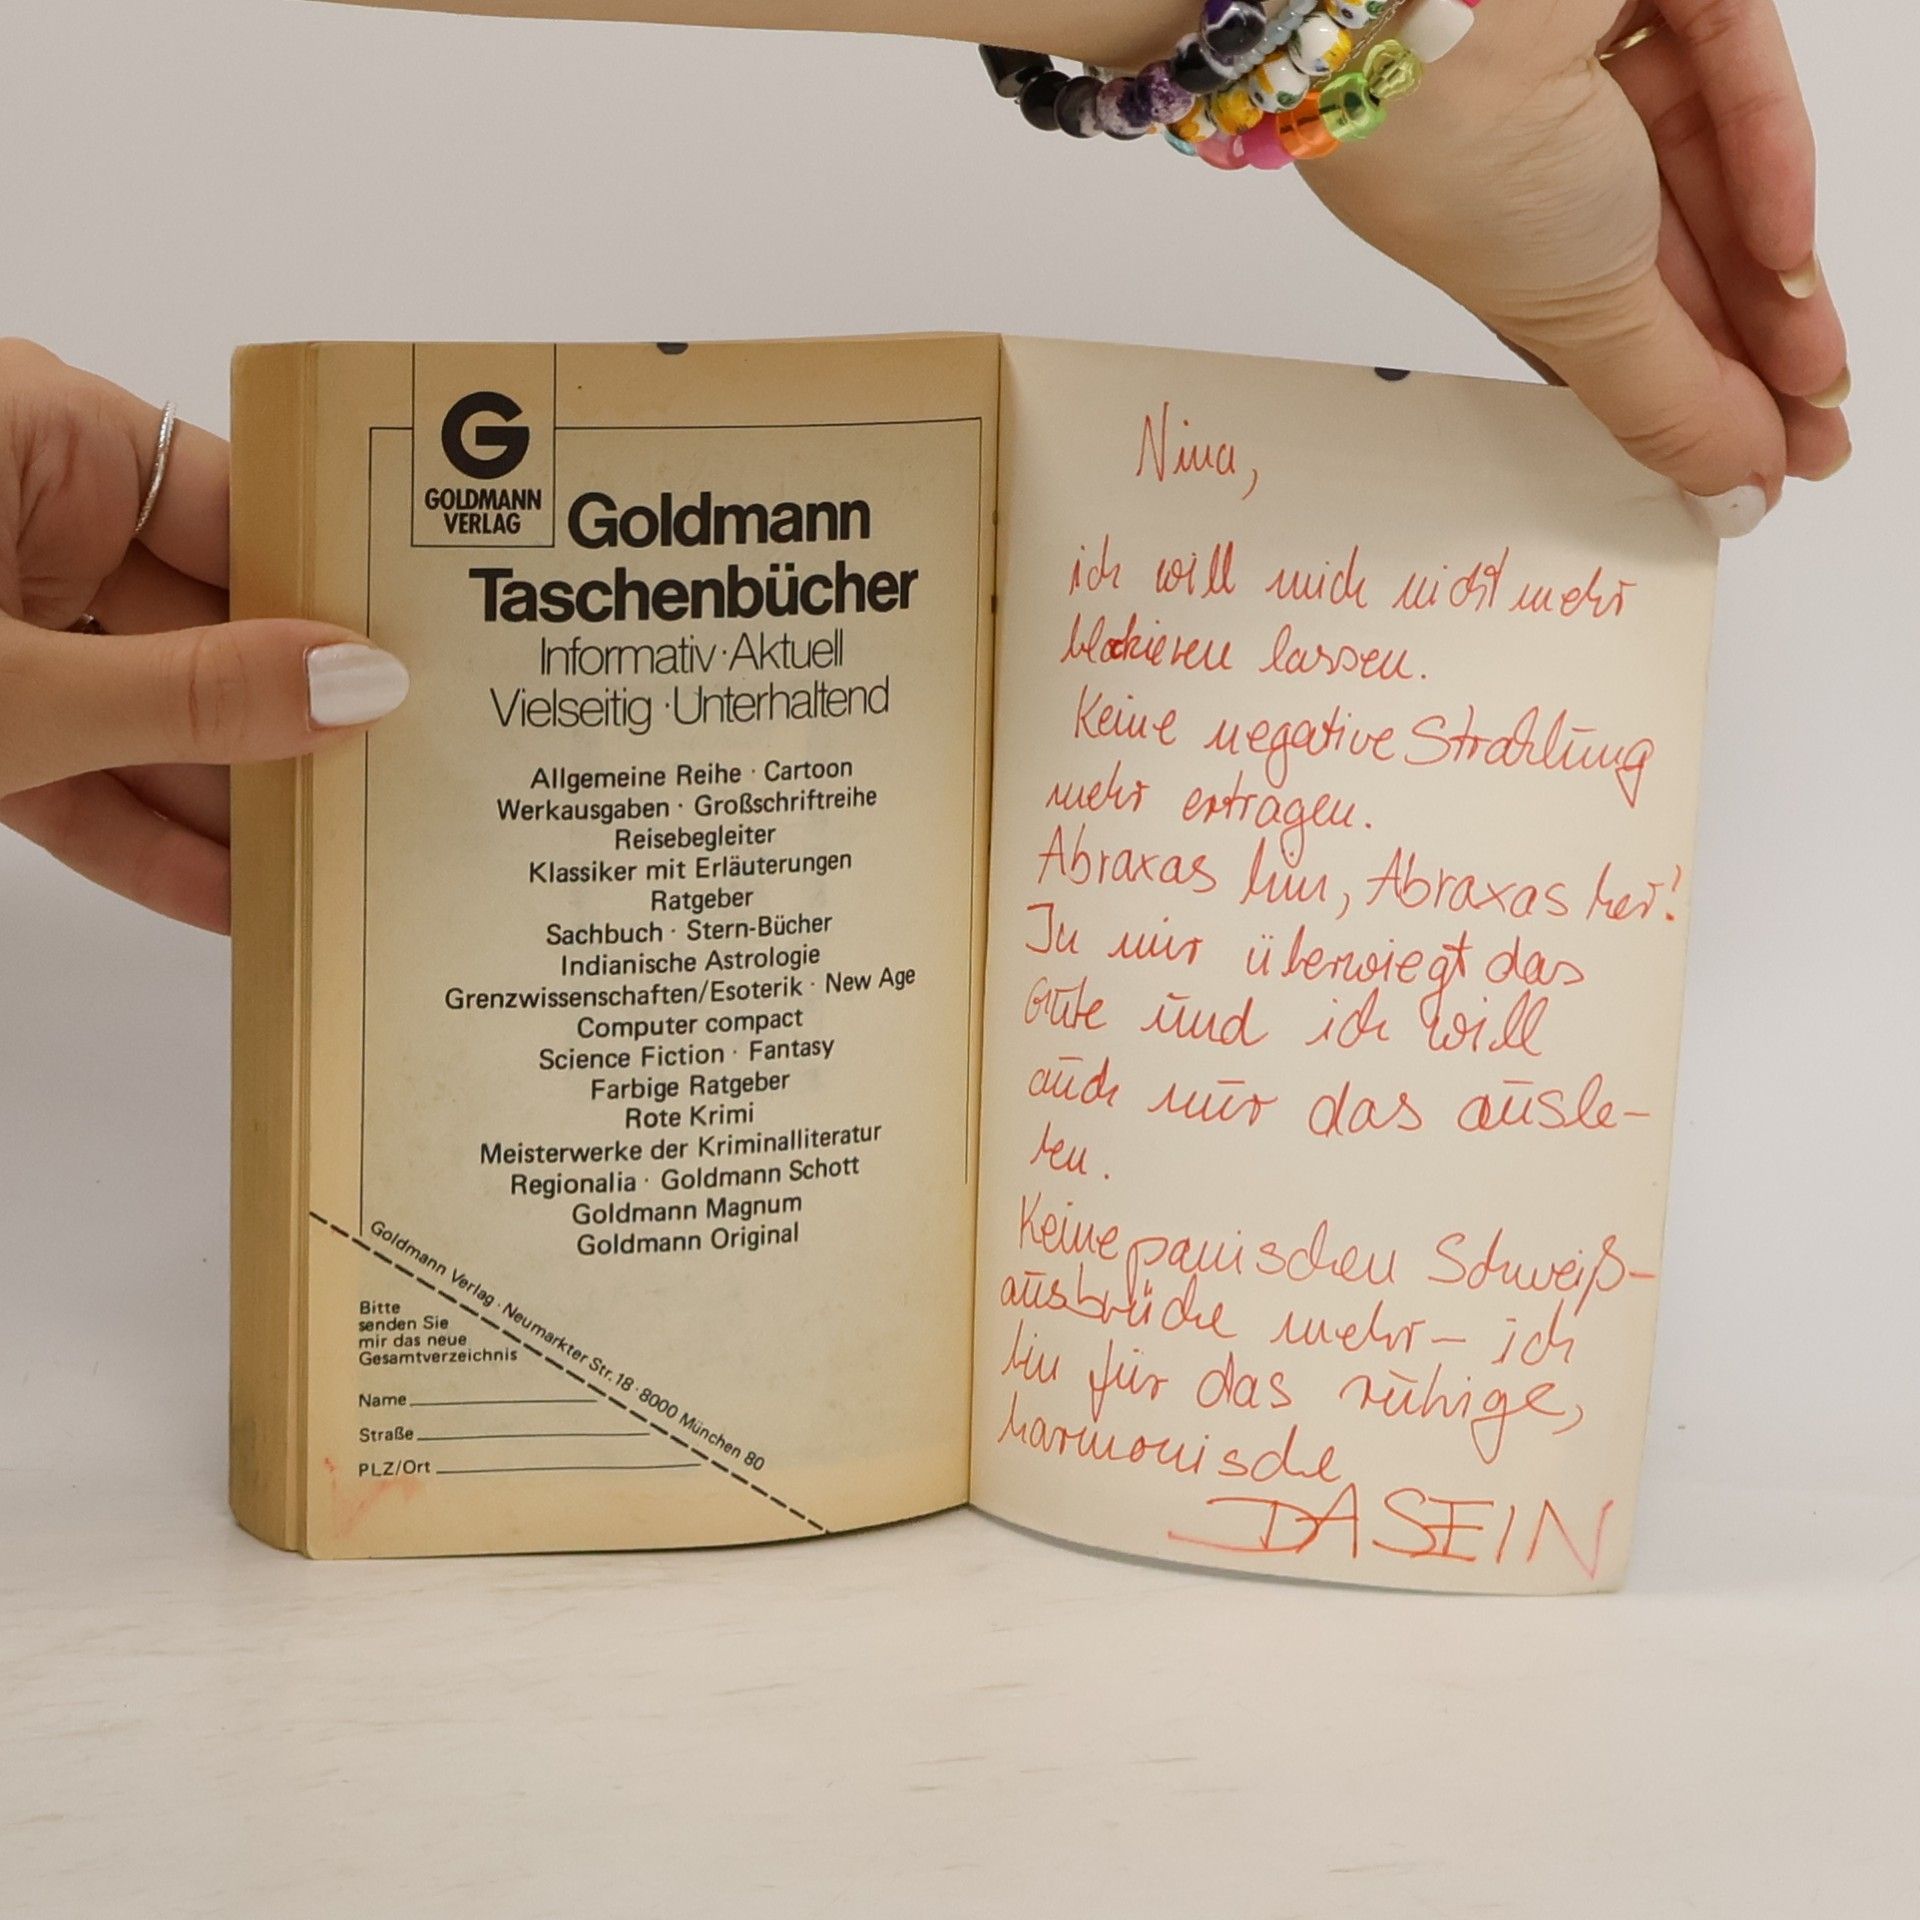 G
GOLDMANN
VERLAG
Goldmann
Taschenbücher
Informativ · Aktuell
Vielseitig · Unterhaltend
Allgemeine Reihe · Cartoon
Werkausgaben · Großschriftreihe
Reisebegleiter
Klassiker mit Erläuterungen
Ratgeber
Sachbuch · Stern-Bücher
Indianische Astrologie
Grenzwissenschaften/Esoterik · New Age
Computer compact
Science Fiction · Fantasy
Farbige Ratgeber
Rote Krimi
Meisterwerke der Kriminalliteratur
Regionalia · Goldmann Schott
Goldmann Magnum
Goldmann Original
Goldmann Verlag · Neumarkter Str. 18 · 8000 München 80
Bitte
senden Sie
mir das neue
Gesamtverzeichnis
Name
Straße
PLZ/Ort
Nina,
ich will mich nicht mehr
blockieren lassen.
Keine negative Strahlung
mehr ertragen.
Abraxas hin, Abraxas her!
In mir überwiegt das
Gute und ich will
auch nur das ausle-
ben.
Keine panischen Schweiß-
ausbrüche mehr – ich
bin für das ruhige,
harmonische
DASEIN